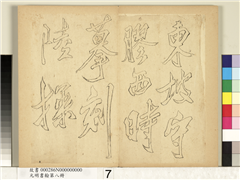 東坡守
膠西時
摹刻
陸探
故畫 000286N000000000
元明書翰第八冊
7